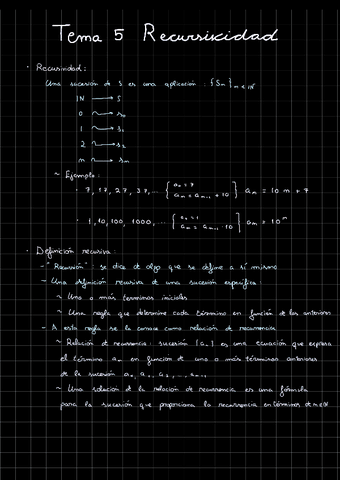 Tema 5 Recursividad
· Recursividad:
Una sucesión de S es una aplicación: {Sn} n∈ℕ
ℕ → S
0 → s0
1 → s1
2 → s2
n → sn
~ Ejemplo:
· 7, 17, 27, 37, ... { a0 = 7
an = an-1 + 10 } an = 10n + 7
· 1, 10, 100, 1000, ... { a0 = 1
an = an-1 · 10 } an = 10^n
· Definición recursiva:
- "Recursión": se dice de algo que se define a sí mismo
- Una definición recursiva de una sucesión especifica:
~ Uno o más terminos iniciales
~ Una regla que determine cada término en función de los anteriores
- A esta regla se la conoce como relación de recurrencia
~ Relación de recurrencia: sucesión {an} es una ecuación que expresa
el término an en función de uno o más términos anteriores
de la sucesión a0, a1, a2, ..., an-1
~ Una solución de la relación de recurrencia es una fórmula
para la sucesión que proporciona la recurrencia en términos de n∈ℕ